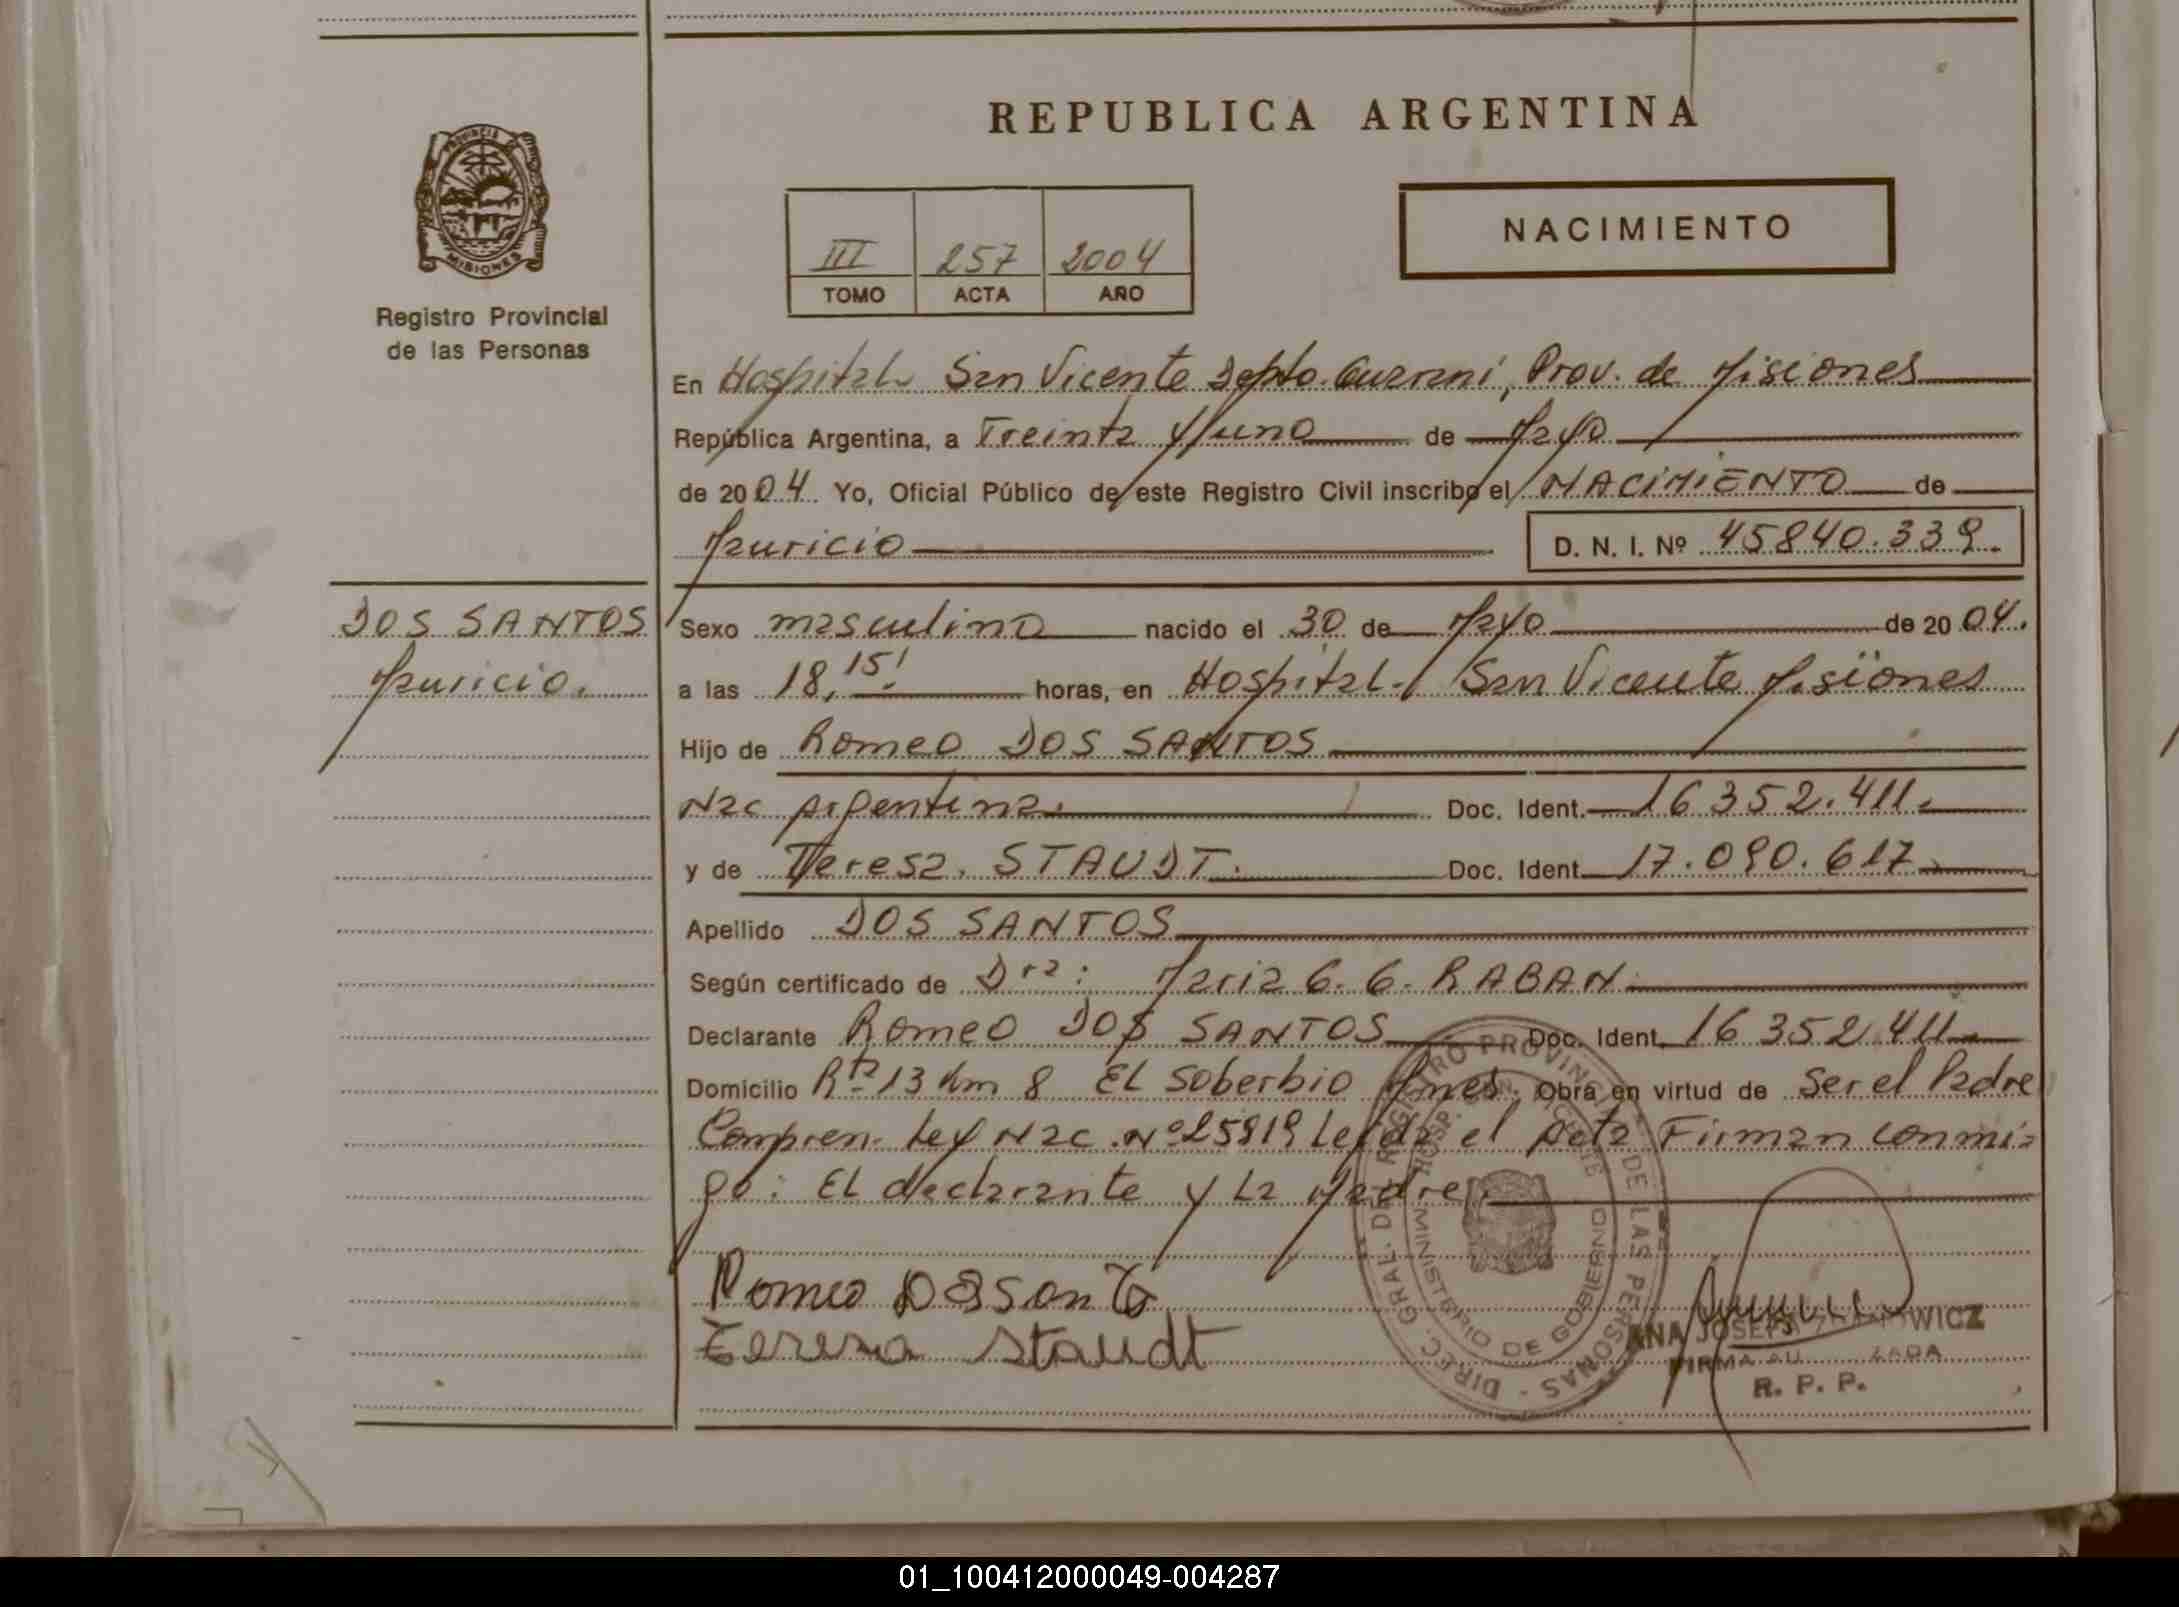 REPUBLICA ARGENTINA
PROVINCIA DE
MISIONES
Registro Provincial
de las Personas
III 257 2004
TOMO ACTA AÑO
NACIMIENTO
En Hospital San Vicente Depto. Guarani, Prov. de Misiones
República Argentina, a Treinta y uno de Mayo
de 2004. Yo, Oficial Público de este Registro Civil inscribo el NACIMIENTO de
Mauricio D. N. I. Nº 45840.339.
DOS SANTOS
Mauricio.
Sexo masculino nacido el 30 de Mayo de 2004.
a las 18,15' horas, en Hospital. San Vicente Misiones
Hijo de Romeo DOS SANTOS
Nac Argentina. Doc. Ident. 16352.411.
y de Teresa. STAUDT. Doc. Ident. 17.090.617
Apellido DOS SANTOS
Según certificado de Dra: Maria G. G. RABAN.
Declarante Romeo DOS SANTOS Doc. Ident. 16352.411
Domicilio Rta 13 Km 8 EL Soberbio Mnes. Obra en virtud de Ser el Padre
Compren. Ley Nac. Nº 25819 Leída el Acta Firman conmi=
go: EL declarante y La Madre.
Romeo Dossanto
Teresa Staudt
DIREC. GRAL. DEL REGISTRO PROVINCIAL DE LAS PERSONAS
HOSP. SAN VICENTE
MINISTERIO DE GOBIERNO
ANA JOSEFA
R. P. P.
01_100412000049-004287